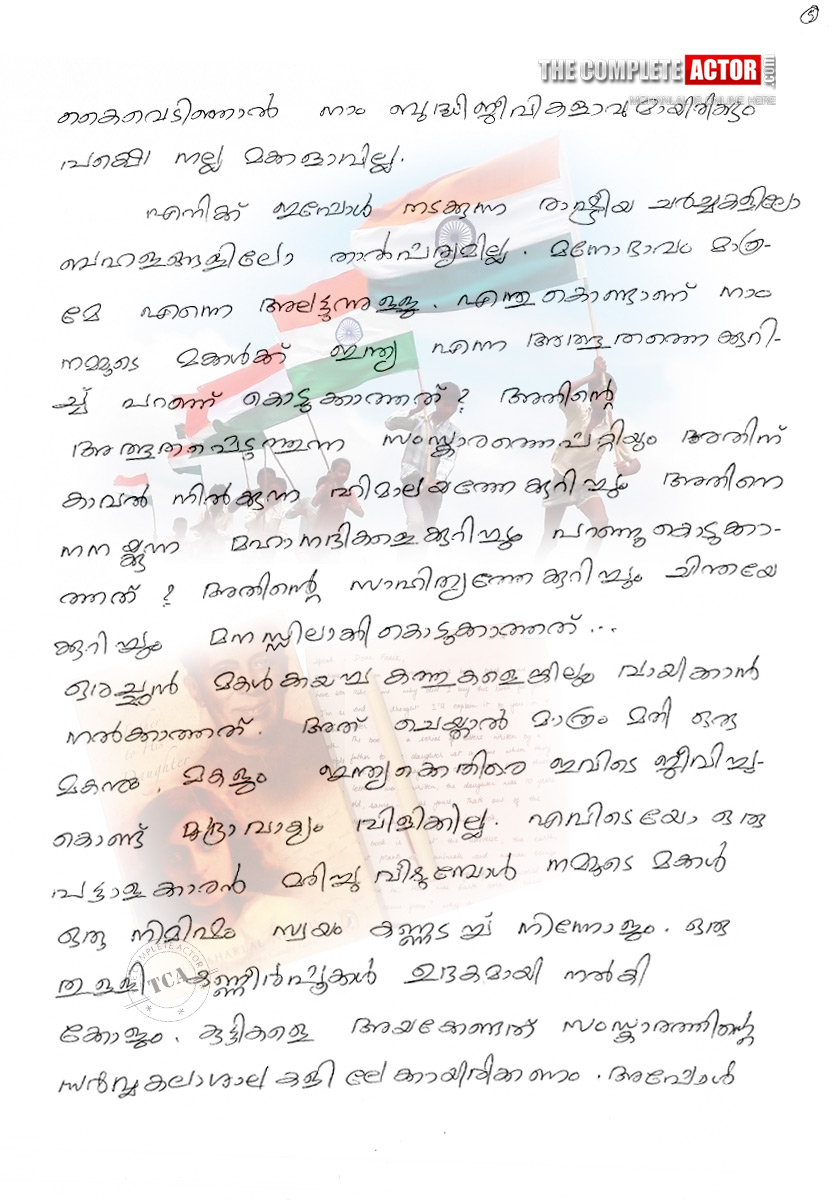 5
THE COMPLETE ACTOR .COM
MOHANLAL ONLINE HERE
കൈവെടിഞ്ഞാൽ നാം ബുദ്ധിജീവികളാവുമായിരിക്കും
പക്ഷെ നല്ല മക്കളാവില്ല.
എനിക്ക് ഇപ്പോൾ നടക്കുന്ന രാഷ്ട്രീയ ചർച്ചകളിലോ
ബഹളങ്ങളിലോ താൽപര്യമില്ല. മനോഭാവം മാത്ര-
മേ എന്നെ അലട്ടുന്നുള്ളൂ. എന്തുകൊണ്ടാണ് നാം
നമ്മുടെ മക്കൾക്ക് ഇന്ത്യ എന്ന അത്ഭുതത്തെക്കുറി-
ച്ച് പറഞ്ഞ് കൊടുക്കാത്തത്? അതിന്റെ
അത്ഭുതപ്പെടുത്തുന്ന സംസ്കാരത്തെപറ്റിയും അതിന്
കാവൽ നിൽക്കുന്ന ഹിമാലയത്തേക്കുറിച്ചും അതിനെ
നനയ്ക്കുന്ന മഹാനദികളെക്കുറിച്ചും പറഞ്ഞുകൊടുക്കാ-
ത്തത്? അതിന്റെ സാഹിത്യത്തേക്കുറിച്ചും ചിന്തയേ
ക്കുറിച്ചും മനസ്സിലാക്കികൊടുക്കാത്തത്...
ഒരച്ഛൻ മകൾക്കയച്ച കത്തുകളെങ്കിലും വായിക്കാൻ
നൽകാത്തത്. അത് ചെയ്താൽ മാത്രം മതി ഒരു
മകനും, മകളും ഇന്ത്യക്കെതിരെ ഇവിടെ ജീവിച്ചു-
കൊണ്ട് മുദ്രാവാക്യം വിളിക്കില്ല. എവിടെയോ ഒരു
പട്ടാളക്കാരൻ മരിച്ചു വീഴുമ്പോൾ നമ്മുടെ മക്കൾ
ഒരു നിമിഷം സ്വയം കണ്ണടച്ച് നിന്നോളും. ഒരു
തുള്ളി കണ്ണീർപൂക്കൾ ഉദകമായി നൽകി
ക്കോളും. കുട്ടികളെ അയക്കേണ്ടത് സംസ്കാരത്തിന്റെ
സർവ്വകലാശാലകളിലേക്കായിരിക്കണം. അപ്പോൾ
COMPLETE ACTOR
TCA